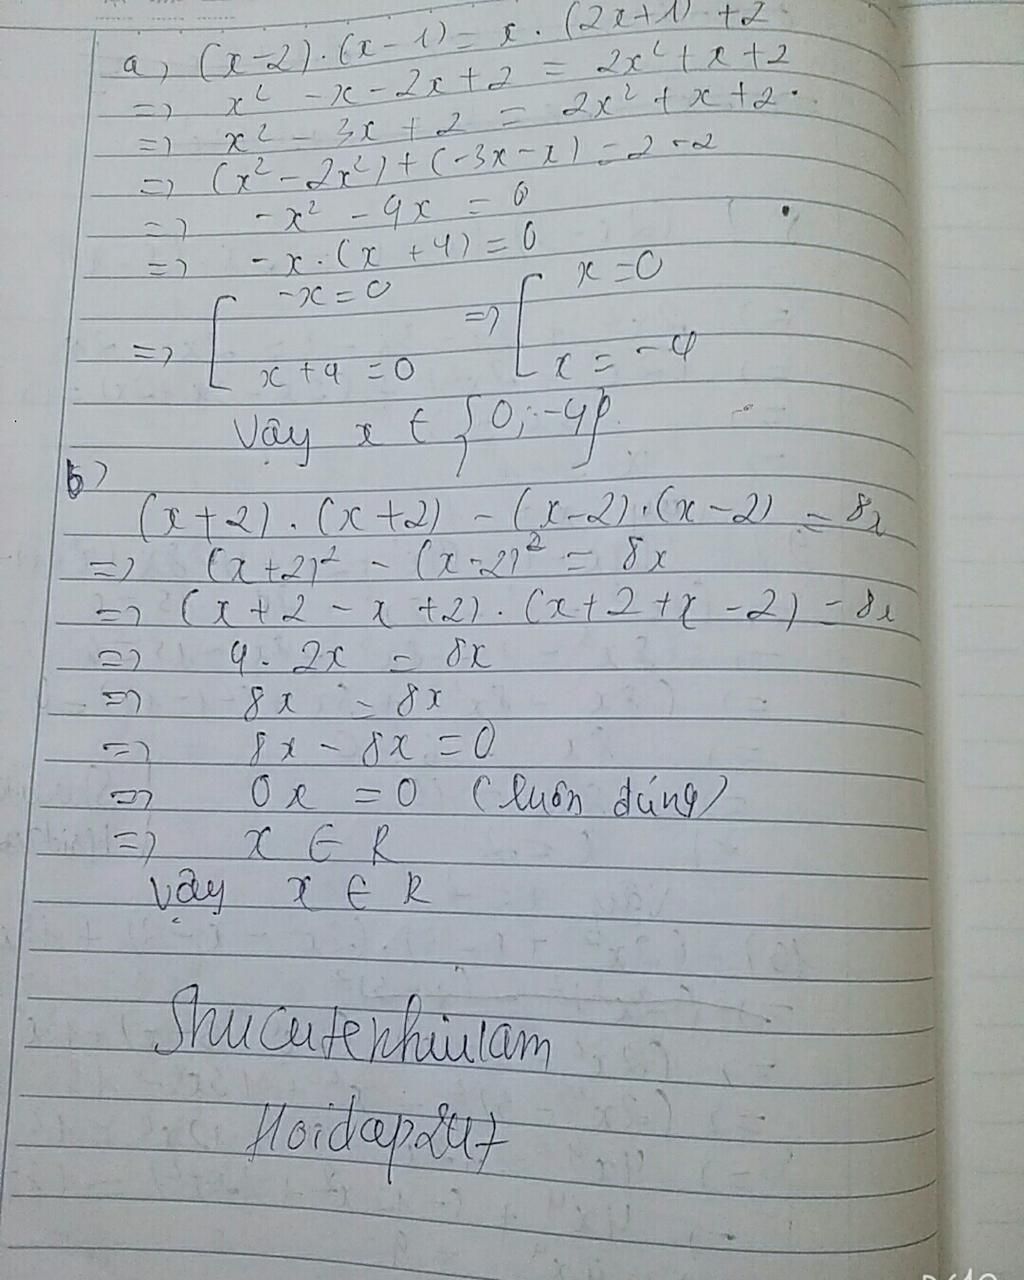 a, (x-2).(x-1) = x.(2x+1) +2
=> x² - x - 2x + 2 = 2x² + x + 2
=> x² - 3x + 2 = 2x² + x + 2.
=> (x² - 2x²) + (-3x - x) = 2 - 2
=> -x² - 4x = 0
=> -x.(x + 4) = 0
=> [ -x = 0 => [ x = 0
x + 4 = 0 x = -4
Vậy x ∈ {0; -4}.
b)
(x+2).(x+2) - (x-2).(x-2) = 8x
=> (x+2)² - (x-2)² = 8x
=> (x+2 - x +2).(x+2+x-2) = 8x
=> 4. 2x = 8x
=> 8x = 8x
=> 8x - 8x = 0
=> 0x = 0 (luôn đúng)
=> x ∈ R
Vậy x ∈ R
Shucutenhiulam
Hoidap247